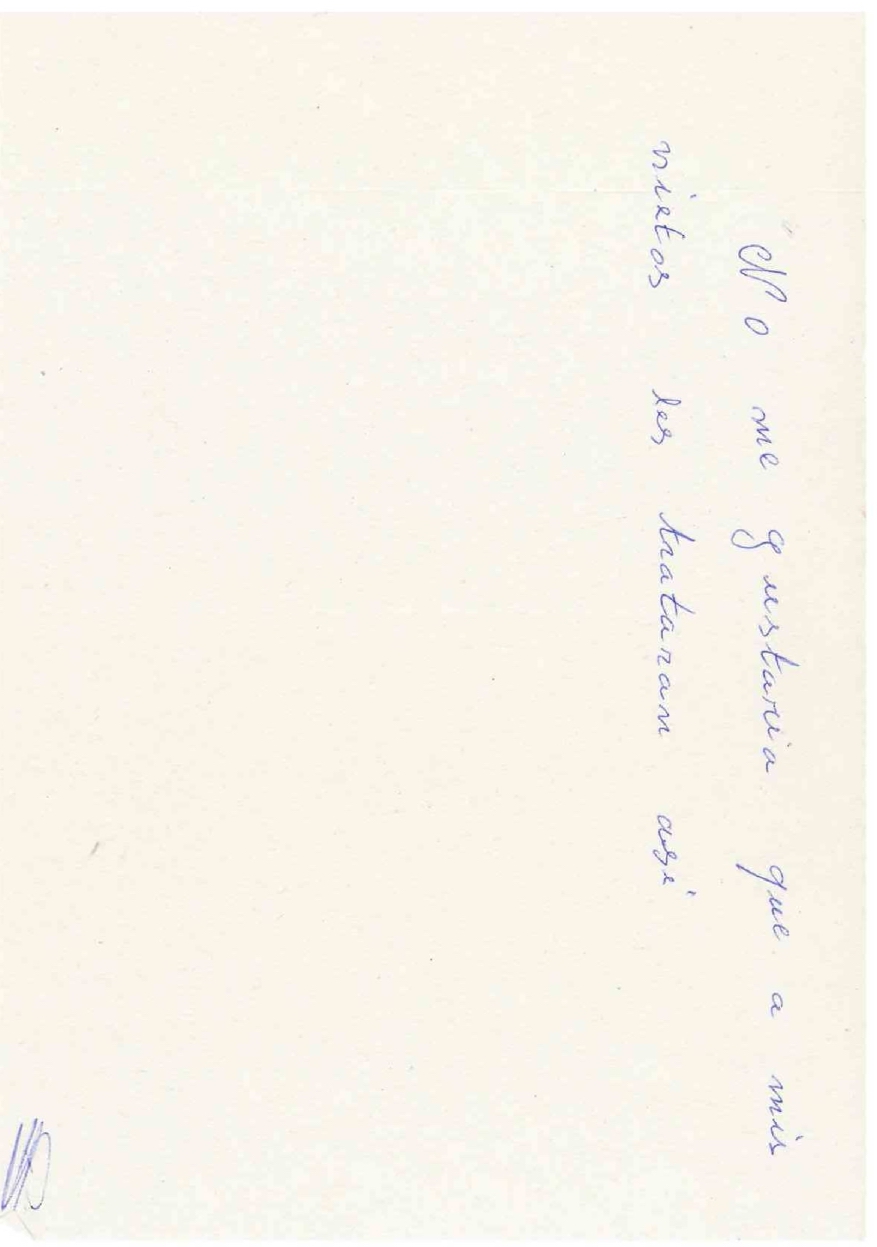 No me gustaria que a mis
nietos les trataran así